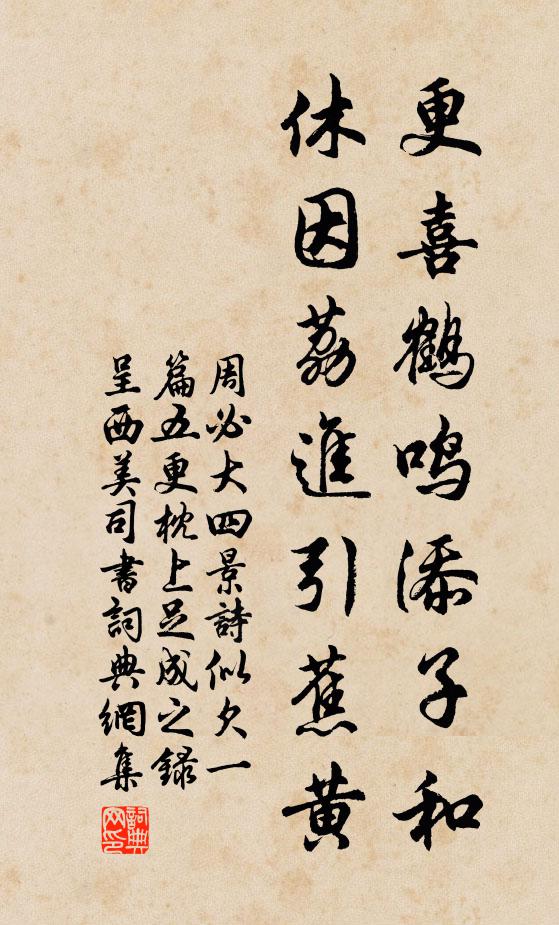 更喜鶴鳴添子和
休因荔進引蕉黄
周必大四景詩似欠一
篇五更枕上足成之録
呈西美司書詞典網集
詞典网印